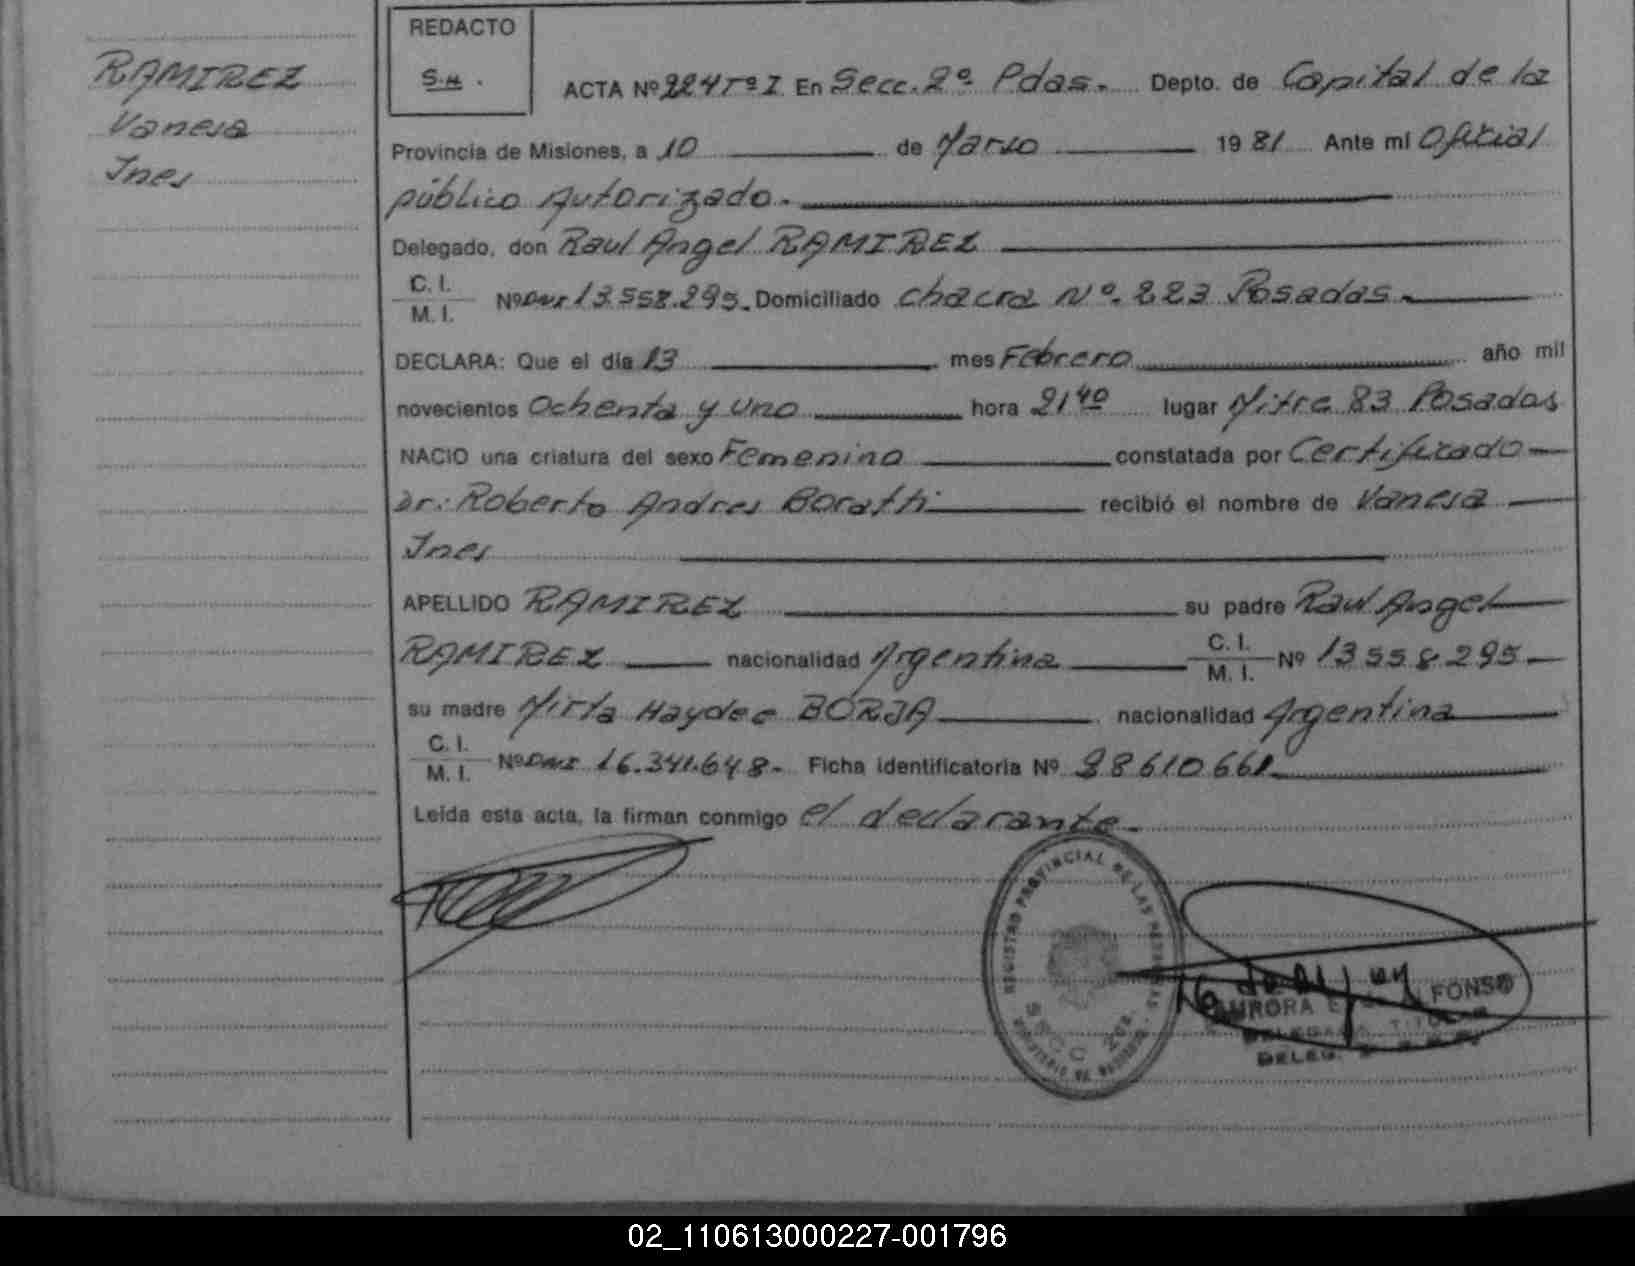 RAMIREZ
Vanesa
Ines
REDACTO
S.H.
ACTA Nº 224 Tº I En Secc. 2º Pdas. Depto. de Capital de la
Provincia de Misiones, a 10 de Marzo 1981 Ante mí Oficial
público Autorizado.
Delegado, don Raul Angel RAMIREZ
C. I.
M. I.
Nº DNI 13.558.295. Domiciliado chacra Nº. 223 Posadas.
DECLARA: Que el día 13 mes Febrero año mil
novecientos Ochenta y uno hora 21 40 lugar Mitre 83 Posadas
NACIO una criatura del sexo Femenino constatada por Certificado
Dr: Roberto Andres recibió el nombre de Vanesa
Ines
APELLIDO RAMIREZ su padre Raul Angel
RAMIREZ nacionalidad Argentina C. I.
M. I. Nº 13558295.
su madre Mirta Haydee BORJA nacionalidad Argentina
C. I.
M. I.
Nº DNI 16.341.648. Ficha Identificatoria Nº 28610661
Leída esta acta, la firman conmigo el declarante.
REGISTRO PROVINCIAL DE LAS PERSONAS
SECC. 2da.
PROVINCIA DE MISIONES
AURORA E. FONSO
DELEGADA TITULAR
DELEG.
02_110613000227-001796